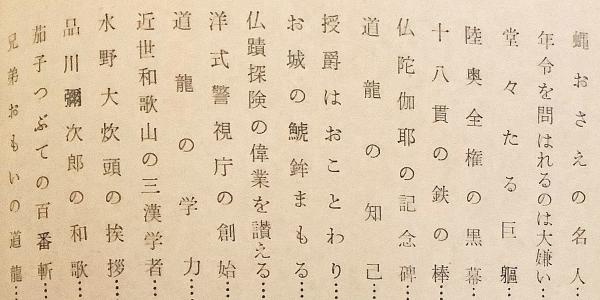 蠅おさえの名人……
年令を問はれるのは大嫌い……
堂々たる巨軀……
陸奥全権の黒幕……
十八貫の鉄の棒……
仏陀伽耶の記念碑……
道龍の知己……
授爵はおことわり……
お城の鯱鉾まもる……
仏蹟探険の偉業を讃える……
洋式警視庁の創始……
道龍の学力……
近世和歌山の三漢学者……
水野大炊頭の挨拶……
品川彌次郎の和歌……
茄子つぶての百番斬……
兄弟おもいの道龍……